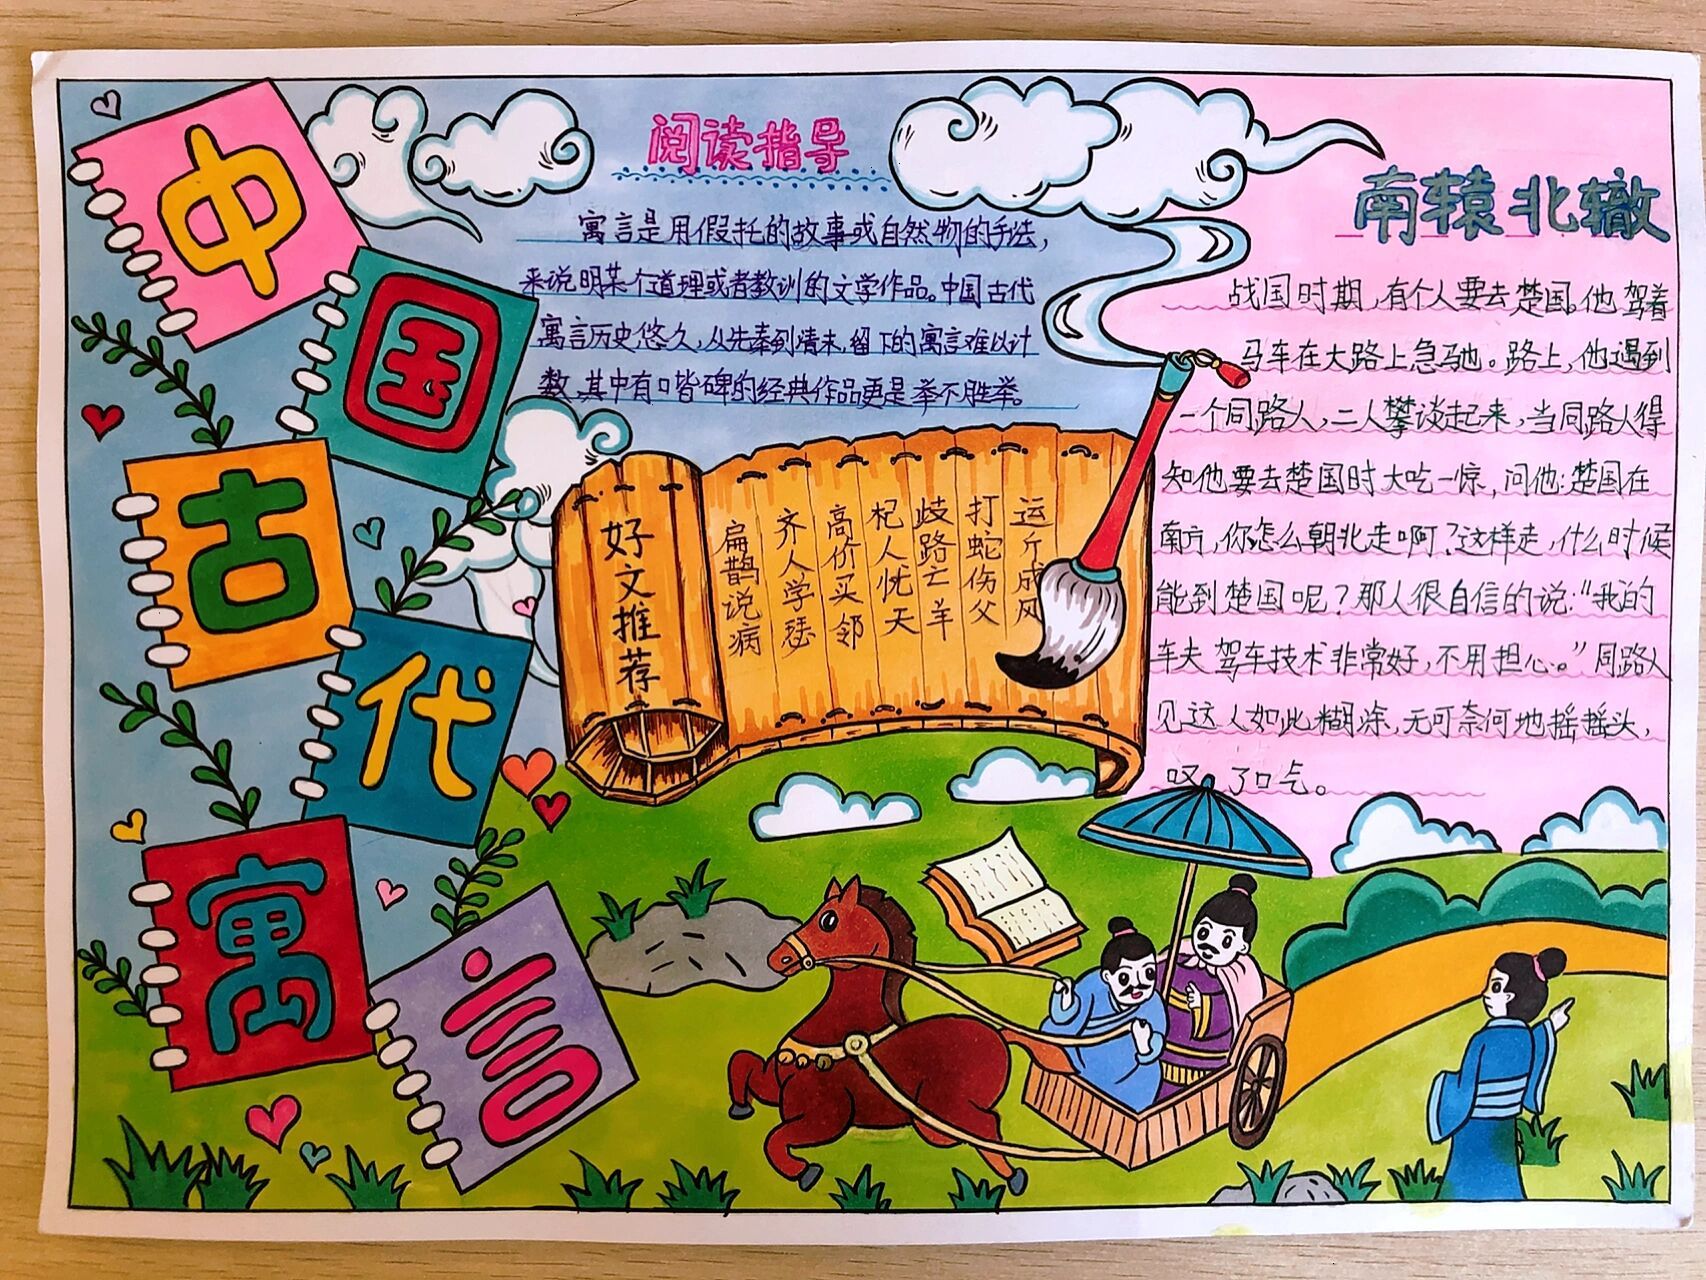 中
国
古
代
寓
言
阅读指导
寓言是用假托的故事或自然物的手法，
来说明某个道理或者教训的文学作品。中国古代
寓言历史悠久，从先秦到清末，留下的寓言难以计
数，其中有口皆碑的经典作品更是举不胜举。
好文推荐
扁鹊说病
齐人学瑟
高价买邻
杞人忧天
歧路亡羊
打蛇伤父
运斤成风
南辕北辙
战国时期，有个人要去楚国。他驾着
马车在大路上急驰。路上，他遇到
一个同路人，二人攀谈起来，当同路人得
知他要去楚国时大吃一惊，问他：楚国在
南方，你怎么朝北走啊？这样走，什么时候
能到楚国呢？那人很自信的说：“我的
车夫驾车技术非常好，不用担心。”同路人
见这人如此糊涂，无可奈何地摇摇头，
叹了口气。